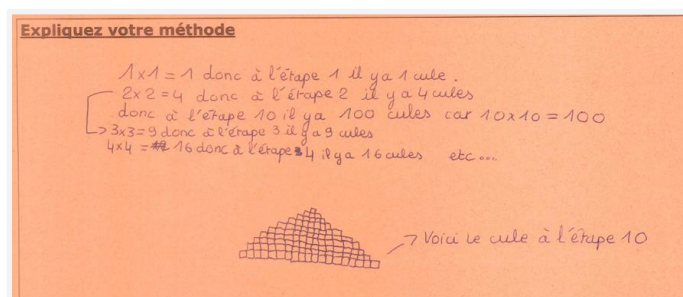 Expliquez votre méthode
1x1 = 1 donc à l'étape 1 il y a 1 cube.
2x2 = 4 donc à l'étape 2 il y a 4 cubes
donc à l'étape 10 il y a 100 cubes car 10x10 = 100
3x3 = 9 donc à l'étape 3 il y a 9 cubes
4x4 = 16 donc à l'étape 4 il y a 16 cubes etc...
Voici le cube à l'étape 10